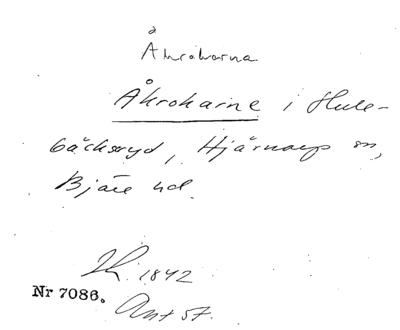 Åkrokarna
Åkrokarne i Hule-
bäcksryd, Hjärnarps sn,
Bjäre hd.
1842
Nr 7086.
Ant 57.